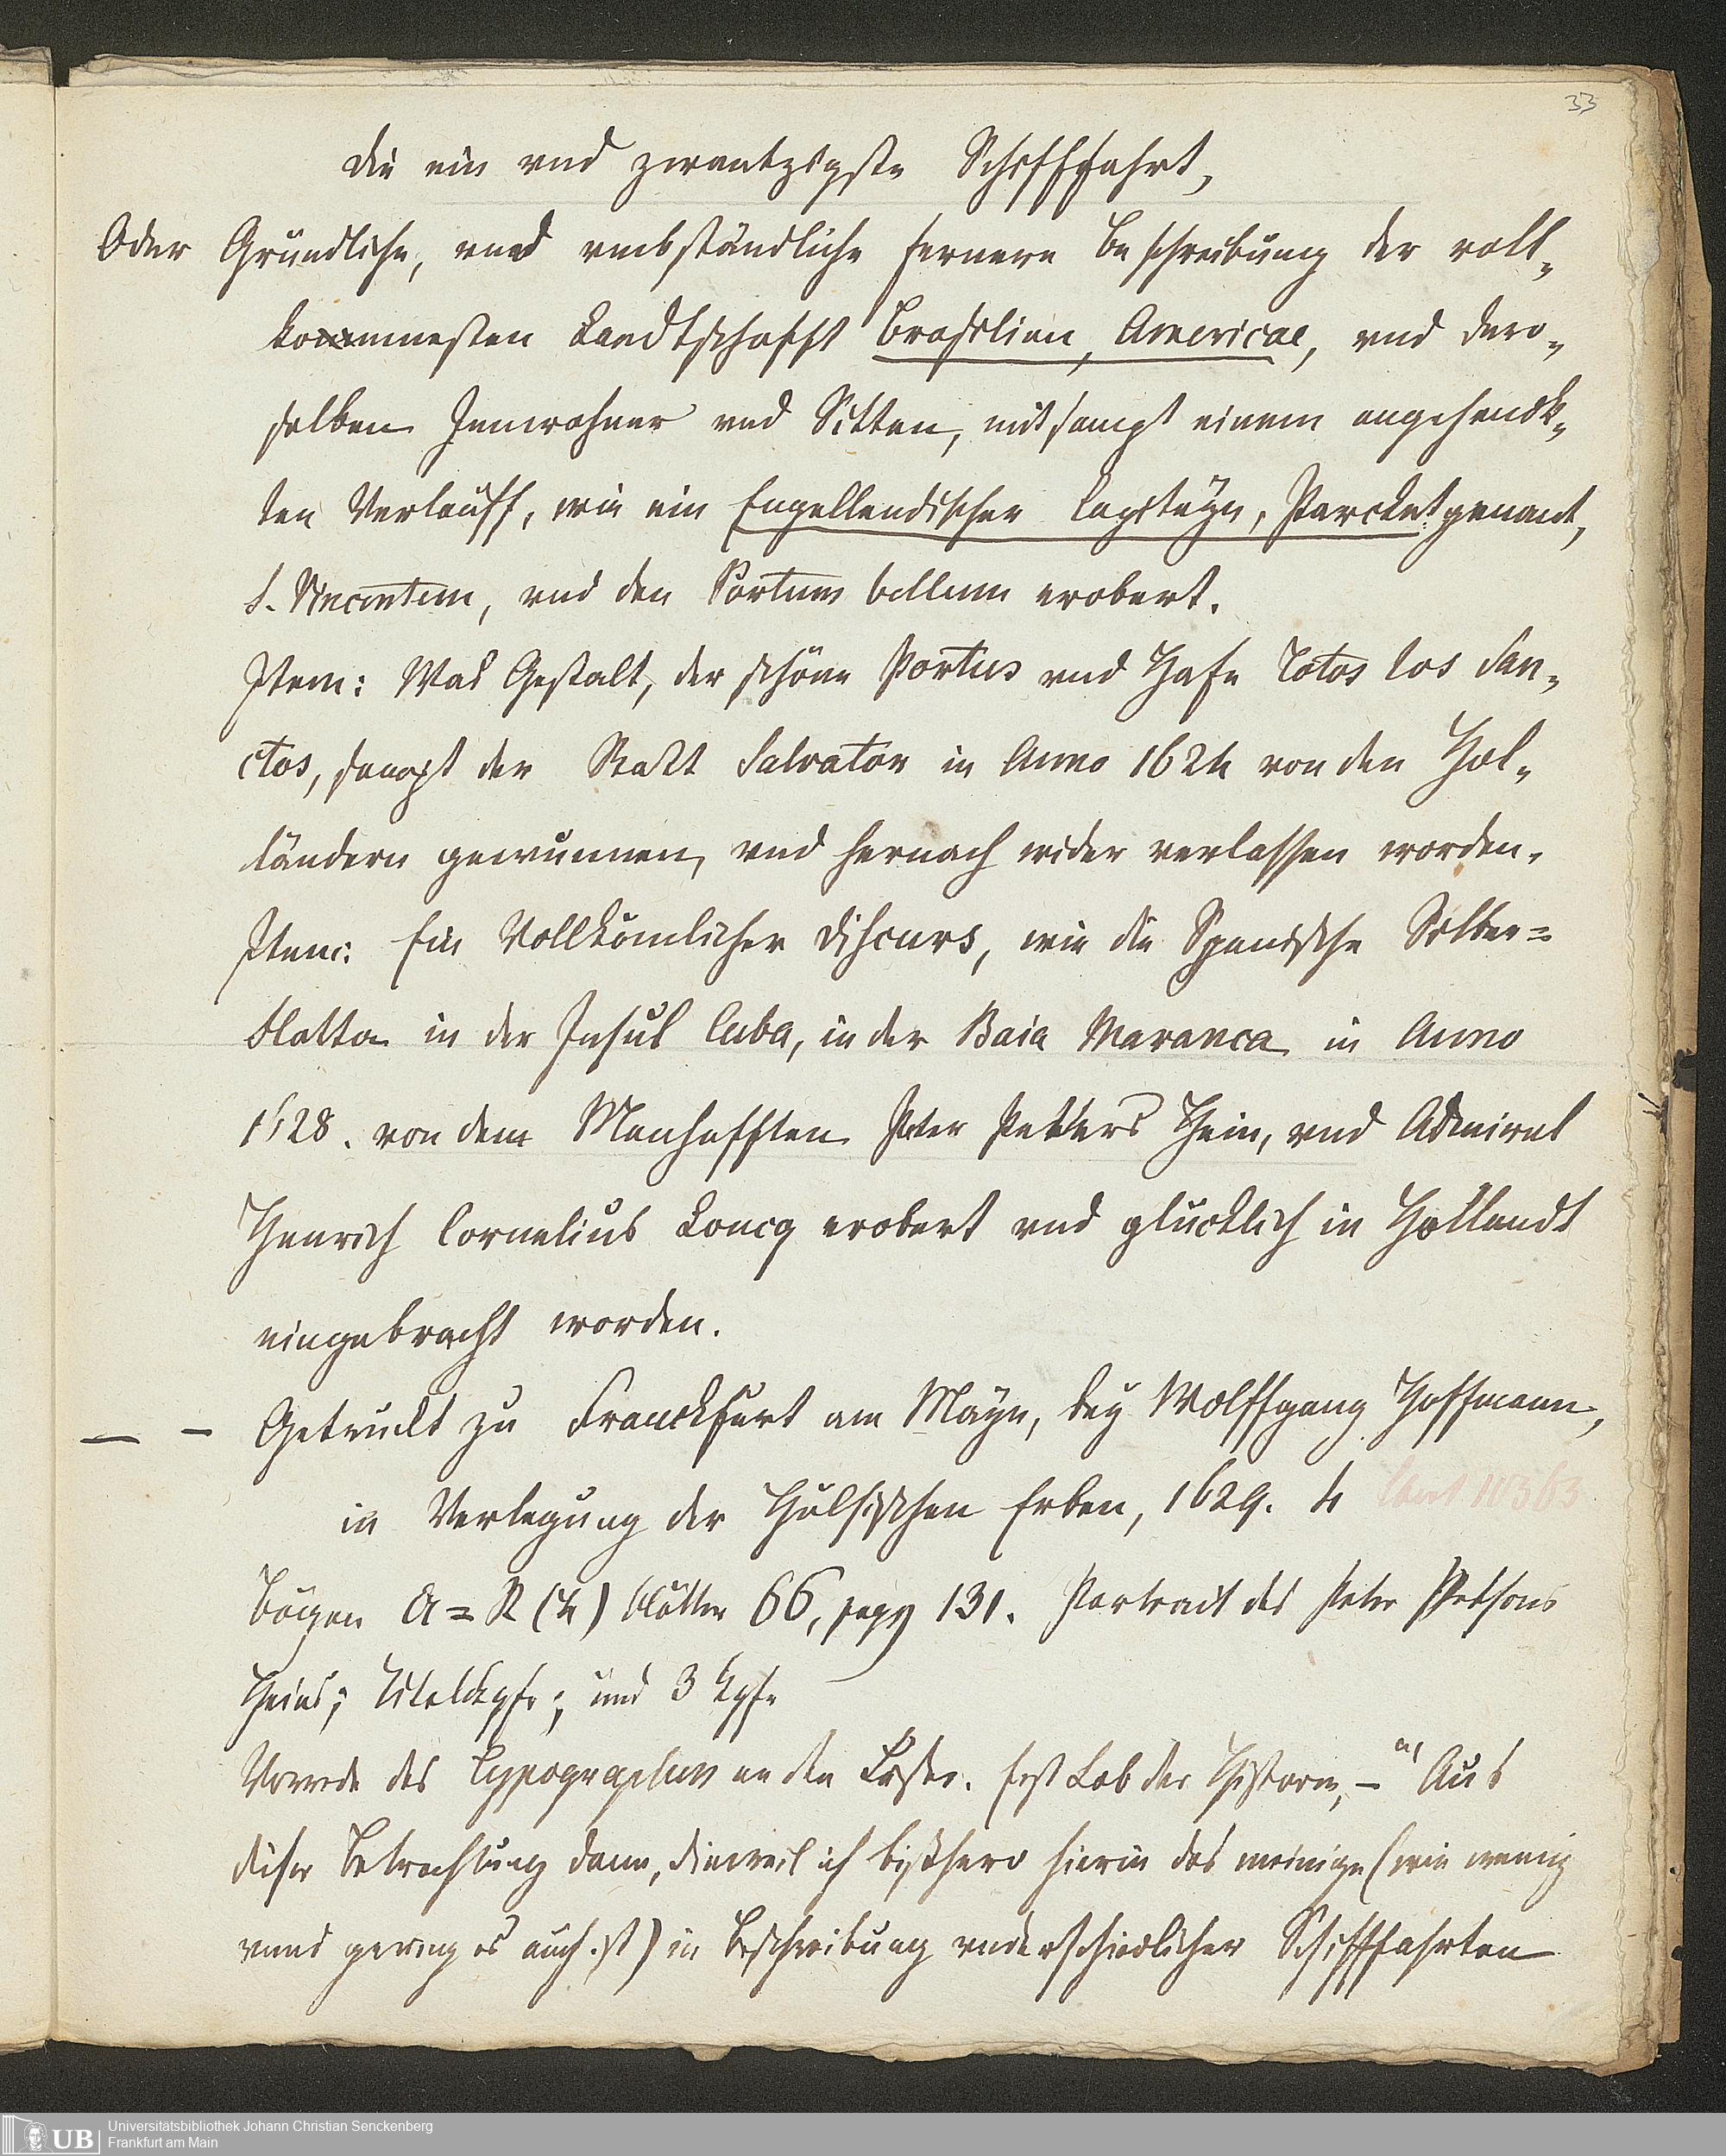 33
Die ein vnd zwantzigste Schifffahrt,
Oder Gründliche, vnnd vmbständliche fernere Beschreibung der voll-
kommnesten Landtschafft Brasilien, Americae, vnd dero-
selben Innwohner vnd Sitten, mit sampt einem angehenck-
ten Verlauff, wie ein Engellendischer Capitäyn, Parcket genant,
S. Vincentem, vnd den Portum bellum erobert.
Item: Was Gestalt, der schöne Portus vnd Hafe Totos los San-
ctos, sampt der Statt Salvator in Anno 1624 von den Hol-
ländern gewunnen, vnd hernach wider verlassen worden.
Item: Ein Vollkömlicher Discurs, wie die Spanische Silber=
flotta in der Insul Cuba, in der Baia Maranca in Anno
1628. von dem Manhafften Peter Petters Hein, vnd Admiral
Henrich Cornelius Loncq erobert vnd glücklich in Hollandt
eingebracht worden.
— – Getruckt zu Franckfurt am Mayn, bey Wolffgang Hoffmann,
in Verlegung der Hülsischen Erben, 1629. 4
Bögen A=R (4) Blätter 66, pagg 131. Portrait des Peter Petsons
Heins; Titelkpfr; und 3 Kpfr
Vorrede des Typographus an den Leser. Erst Lob der Historie, – "Aus
dieser Betrachtung dann, dieweil ich bißhero hierin das meinige (wie wenig
vnnd gering es auch ist) in Beschreibung vnderschiedlicher Schifffahrten
UB
Universitätsbibliothek Johann Christian Senckenberg
Frankfurt am Main